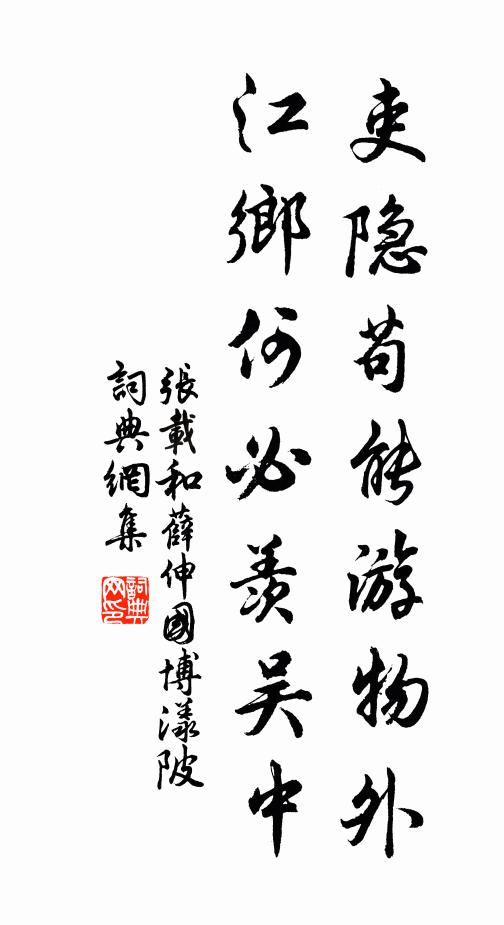 吏隐苟能游物外
江鄉何必羨吴中
張載和薛伸國博漾陂
詞典網集
詞典網印